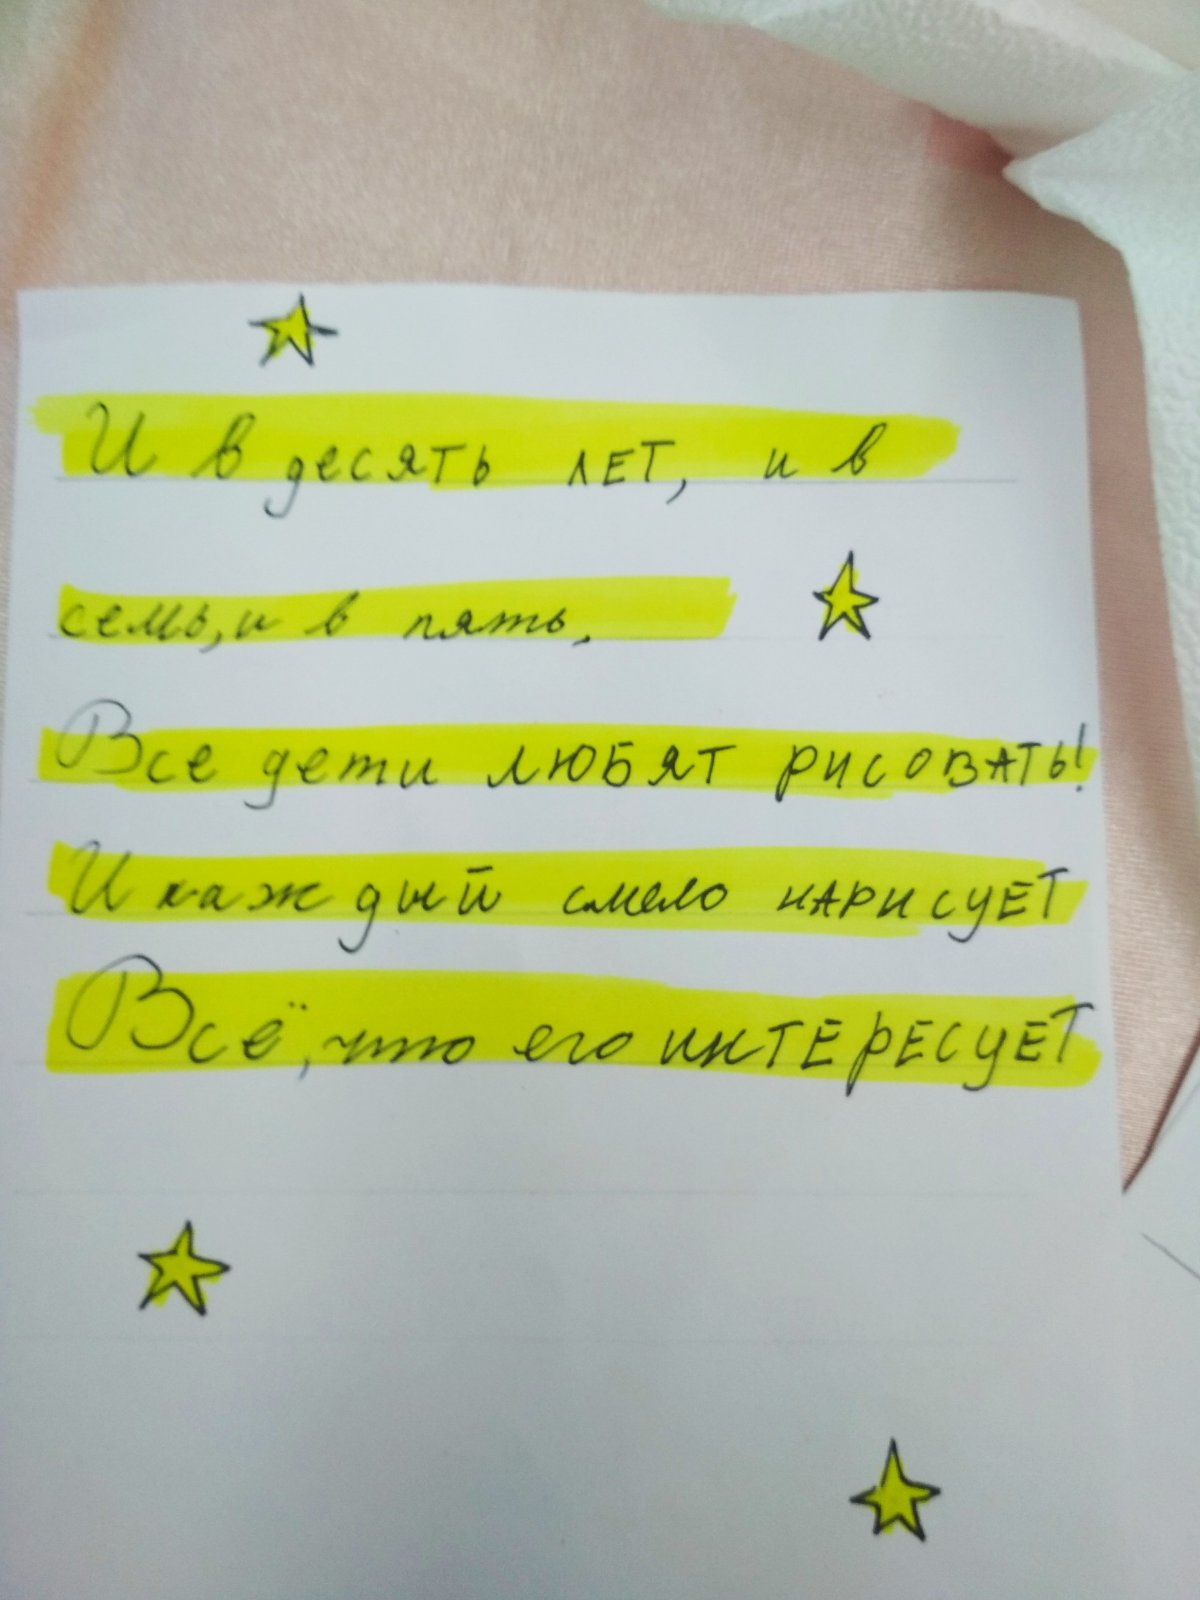 И в десять лет, и в
семь, и в пять,
Все дети любят рисовать!
И каждый смело нарисует
Всё, что его интересует